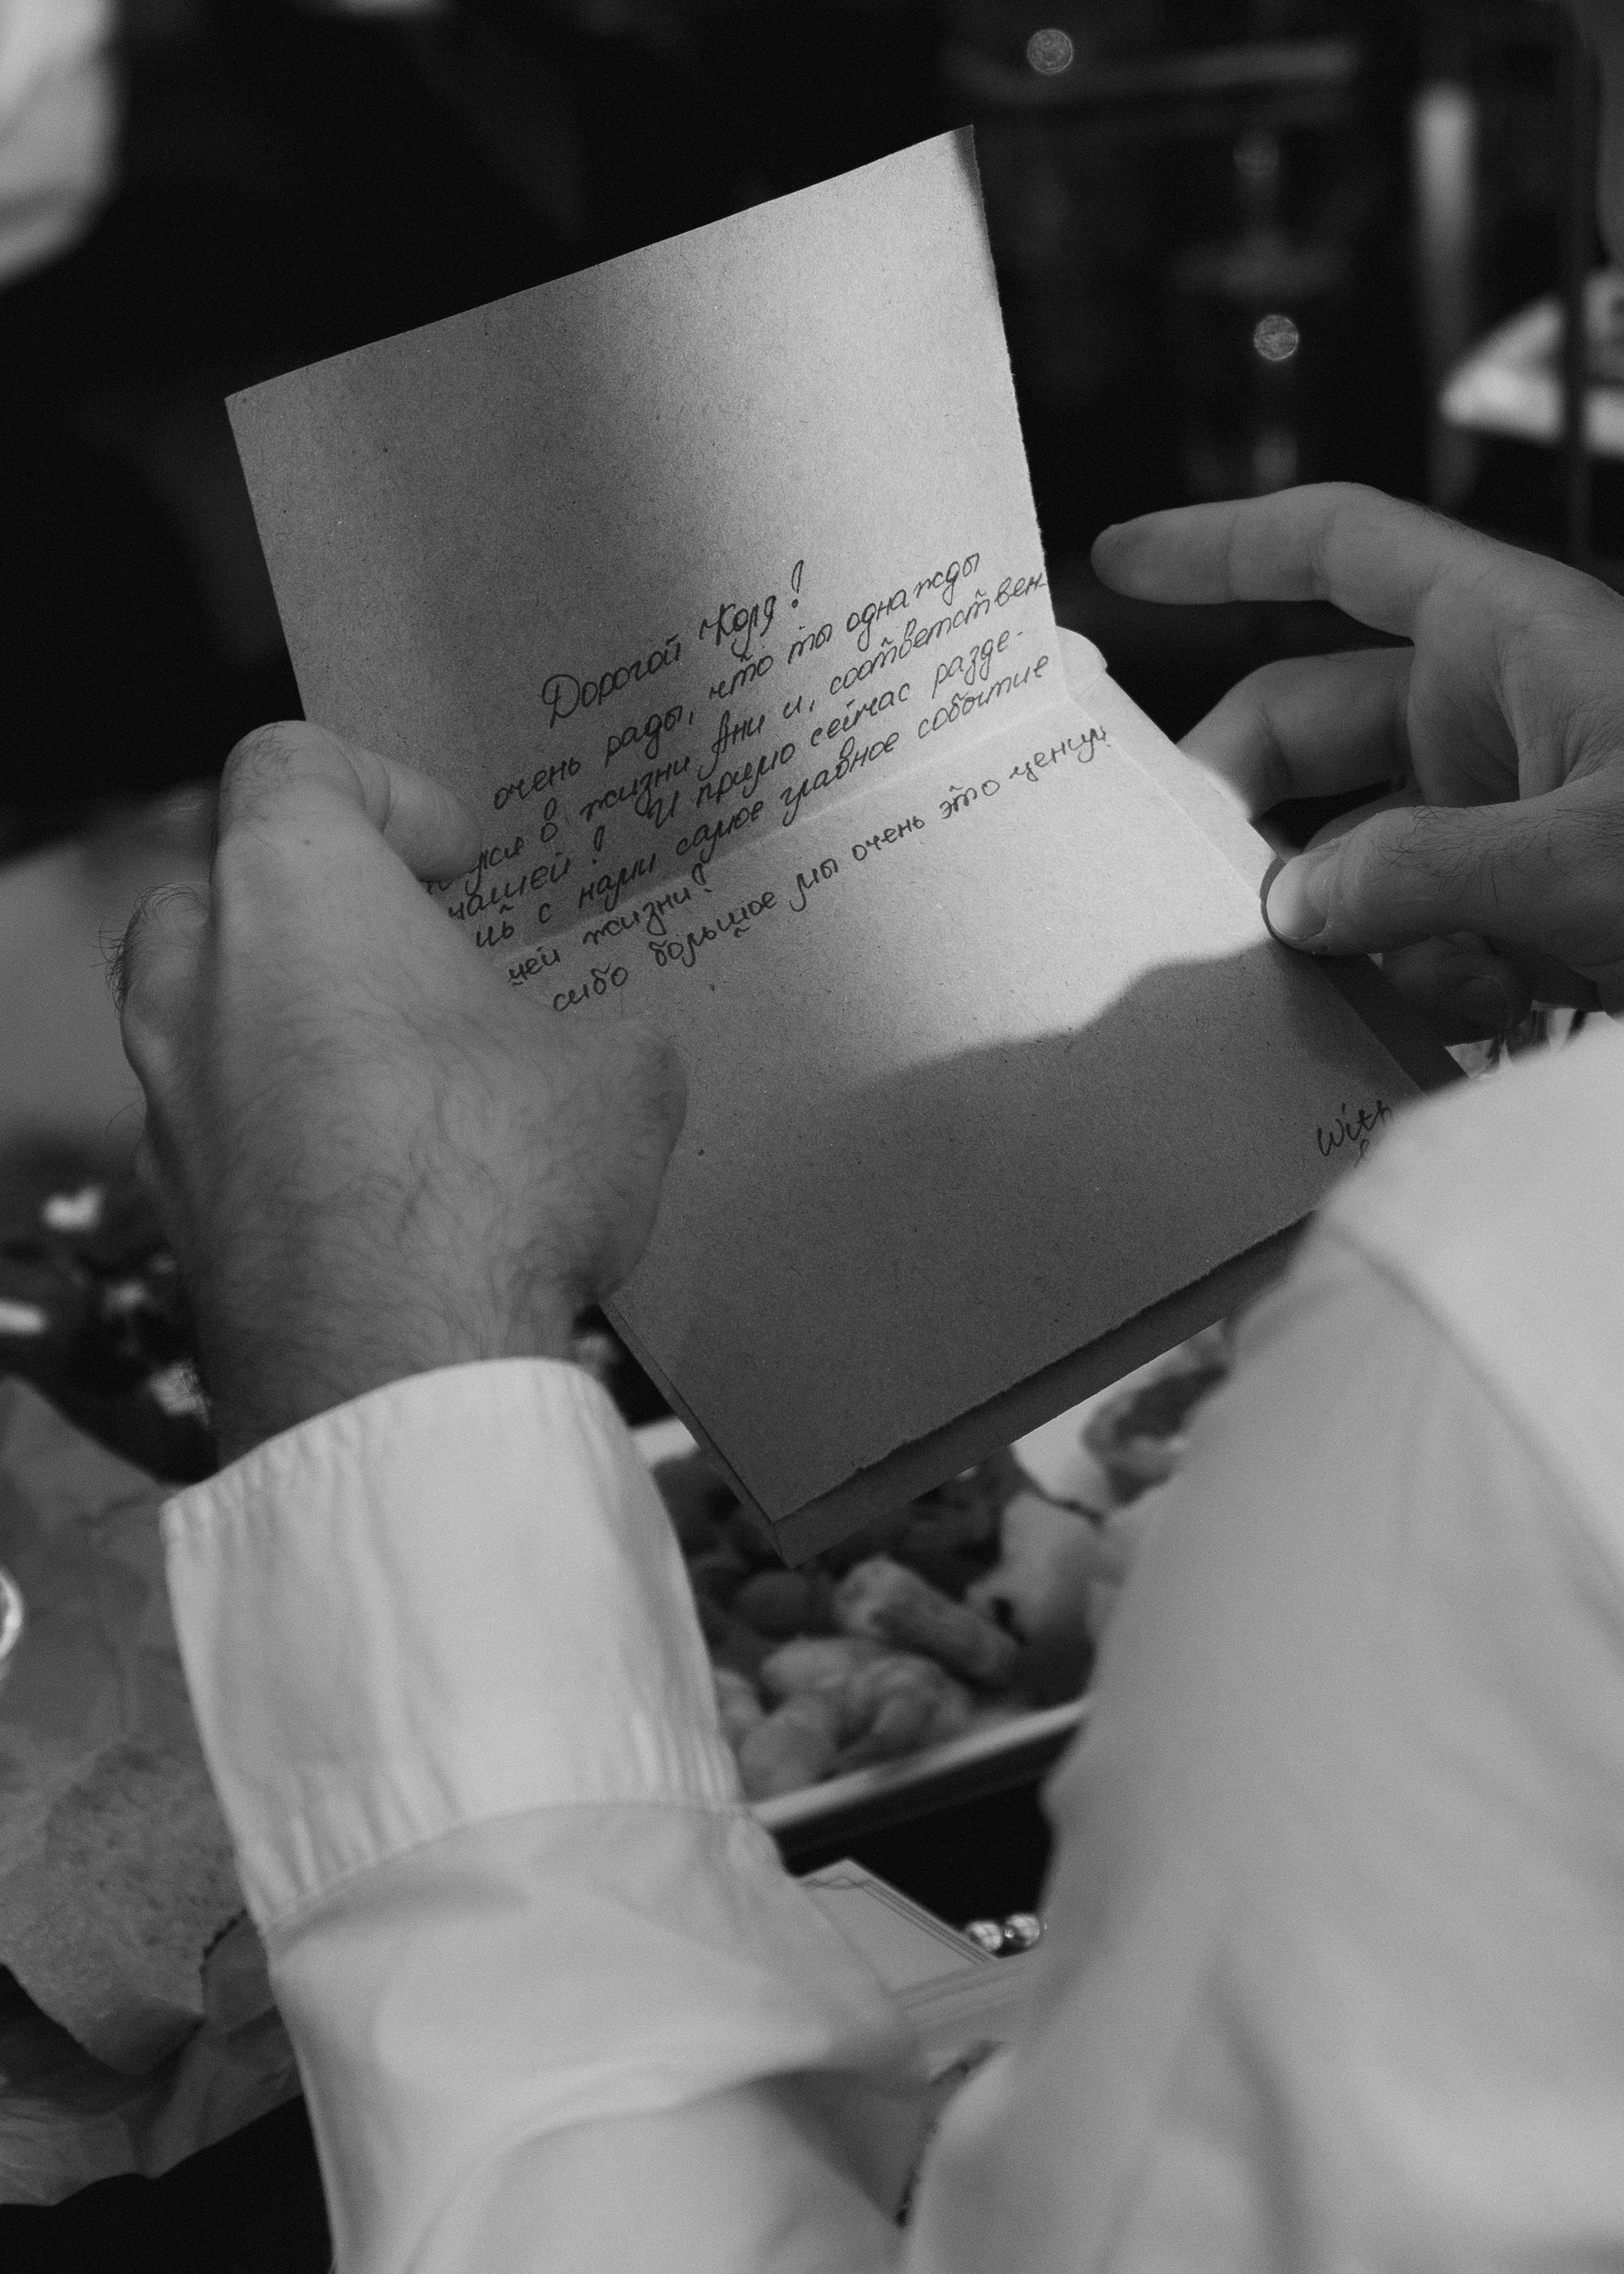 Дорогой Коля!
очень рады, что ты однажды
в жизни Ани и, соответствен-
нашей! И прямо сейчас разде-
шь с нами самое главное событие
шей жизни!
сибо большое, мы очень это ценим!
With